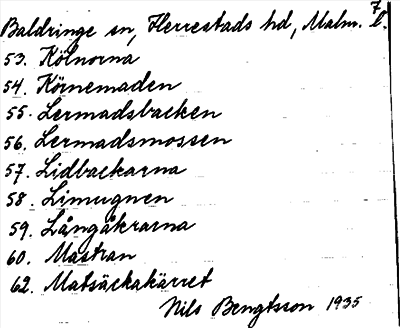 7.
Baldringe sn, Herrestads hd, Malm. l.
53. Kölnorna
54. Körnemaden
55. Lermadsbacken
56. Lermadsmossen
57. Lidbackarna
58. Limugnen
59. Långåkrarna
60. Mastran
62. Matsäckakärret
Nils Bengtsson 1935